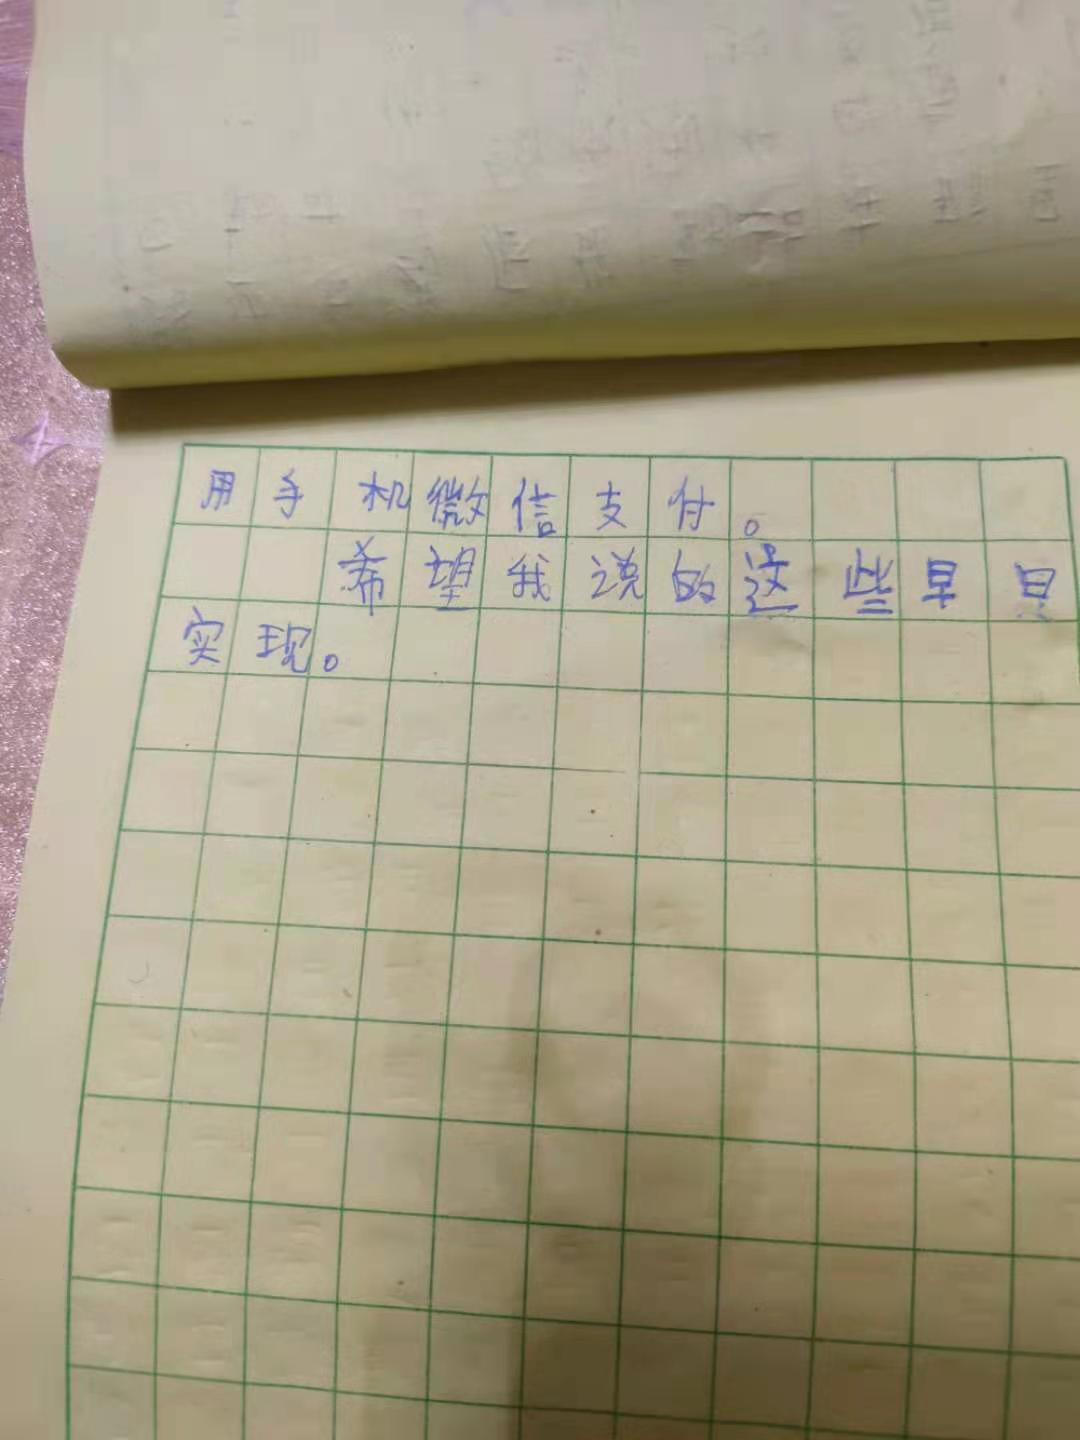 用手机微信支付。
希望我说的这些早日
实现。